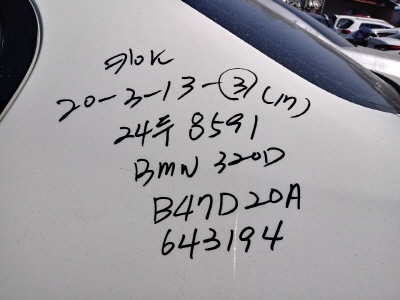 키ok
20-3-13-③(17)
24두 8591
BMW 320D
B47D20A
643194